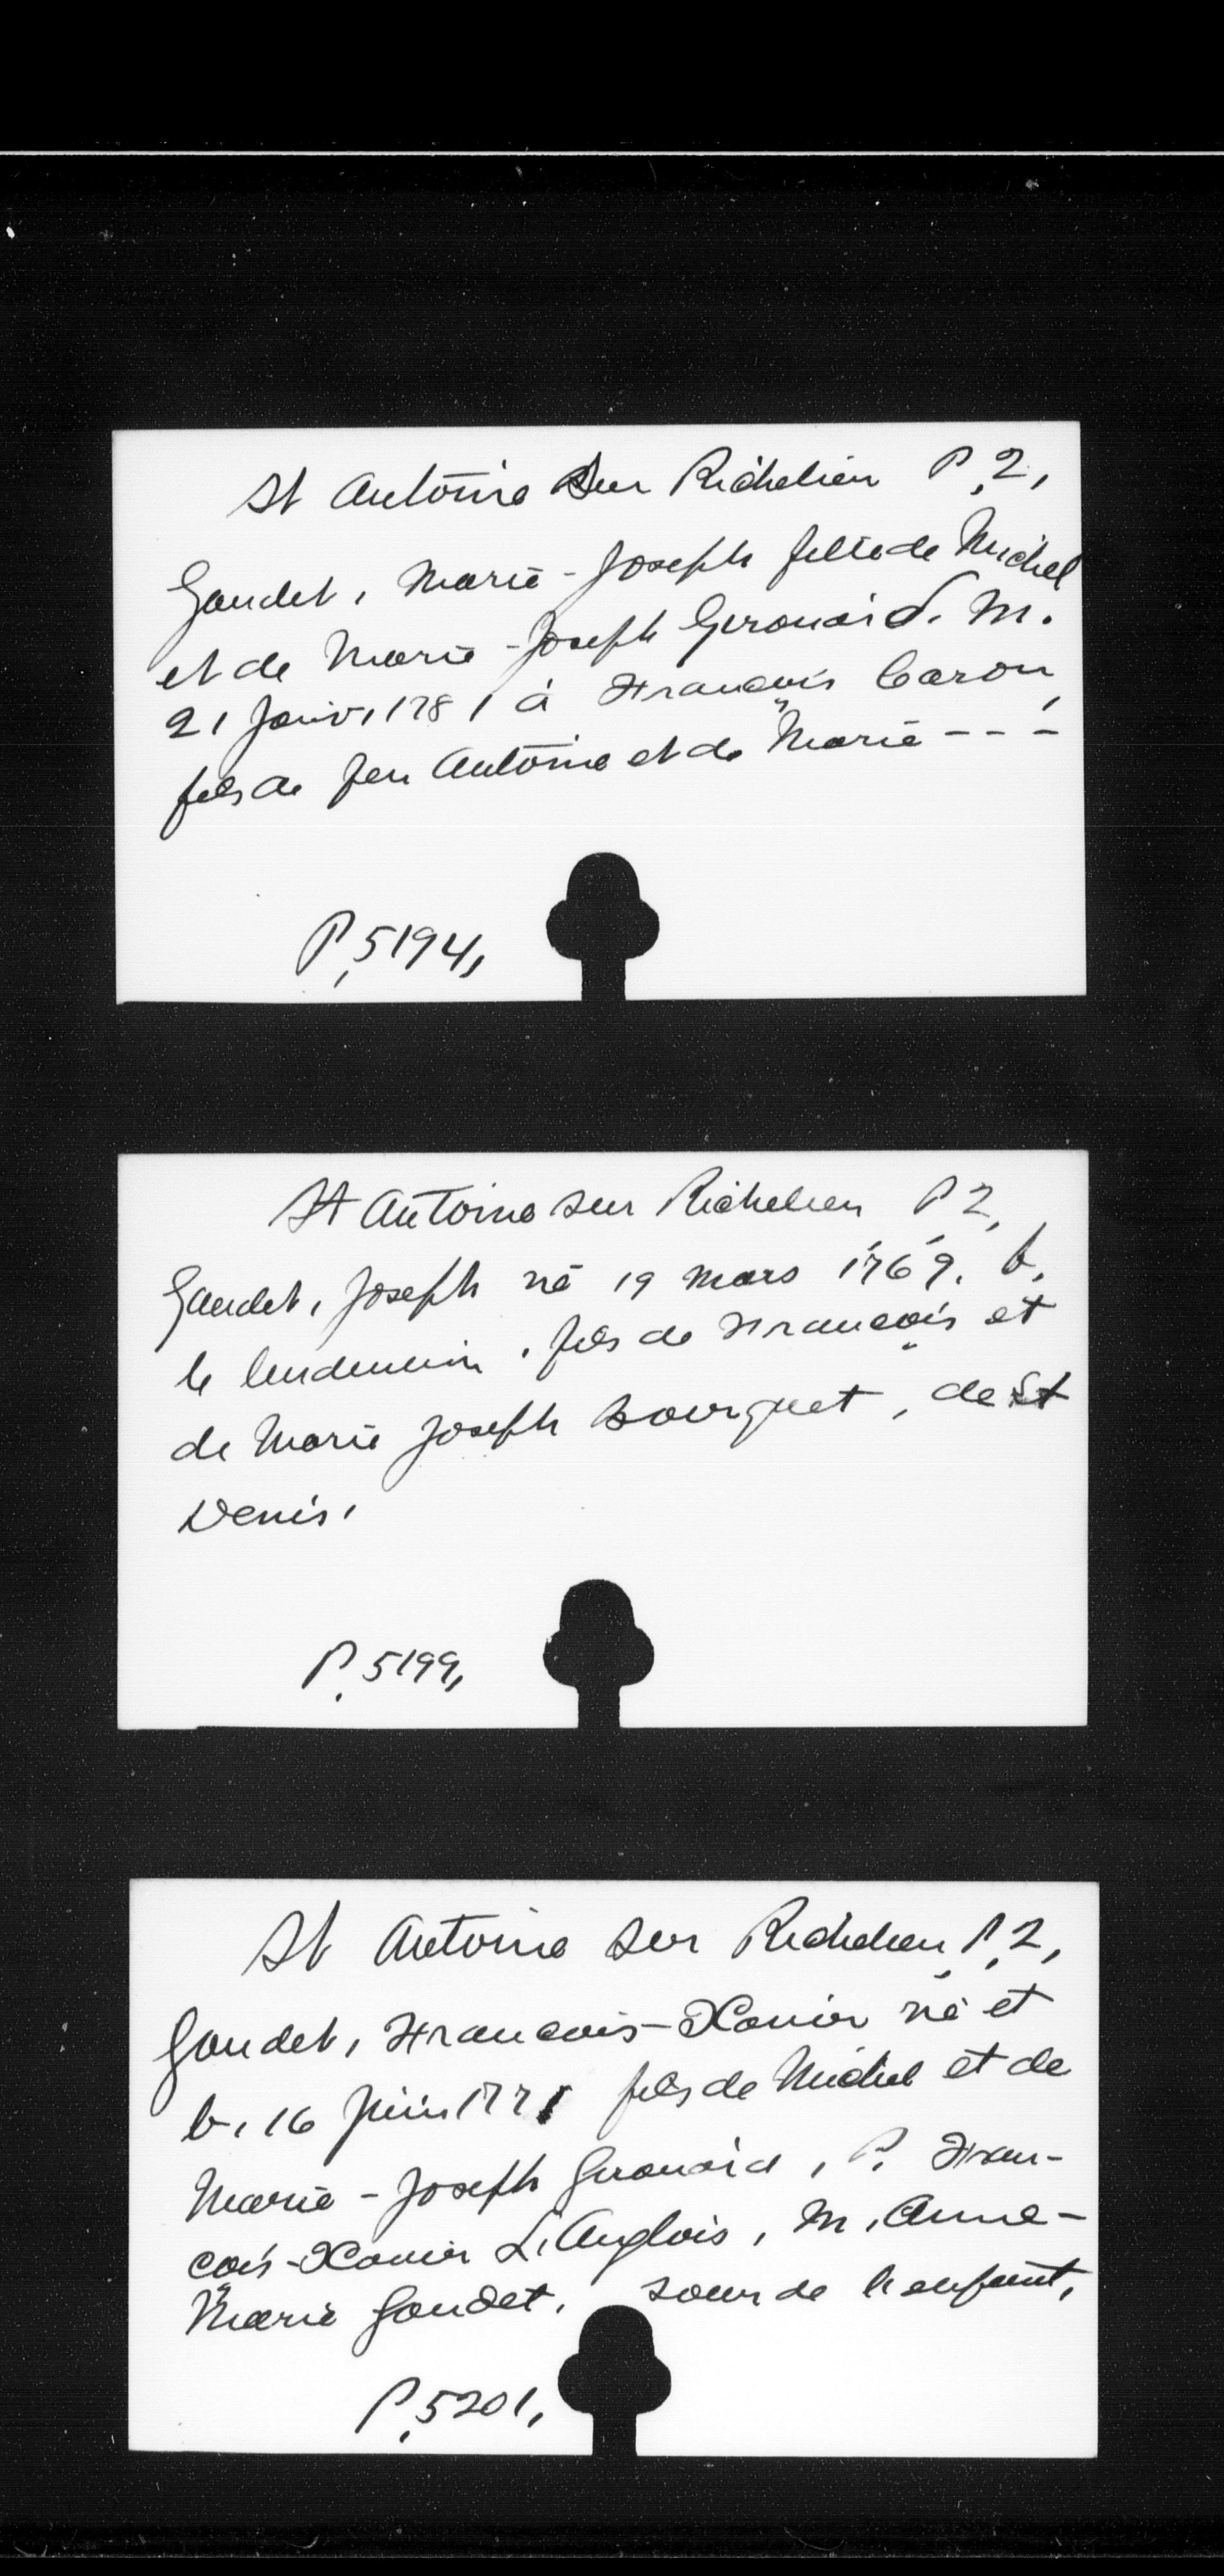 St Antoine sur Richelieu P.2,
Gaudet, Marie-Joseph fille de Michel
et de Marie-Joseph Girouard. M.
21 Janv. 1781 à François Caron,
fils de feu Antoine et de Marie ---
P. 5194,
St Antoine sur Richelieu P 2,
Gaudet, Joseph né 19 Mars 1769. b,
le lendemain. fils de François et
de Marie Joseph Bourquet, de St
Denis,
P. 5199,
St Antoine sur Richelieu P.2,
Gaudet, François-Xavier né et
b, 16 Juin 1771 fils de Michel et de
Marie-Joseph Girouard, P. Fran-
çois-Xavier L'Anglois, M, Anne-
Marie Gaudet, sœur de l'enfant,
P. 5201,